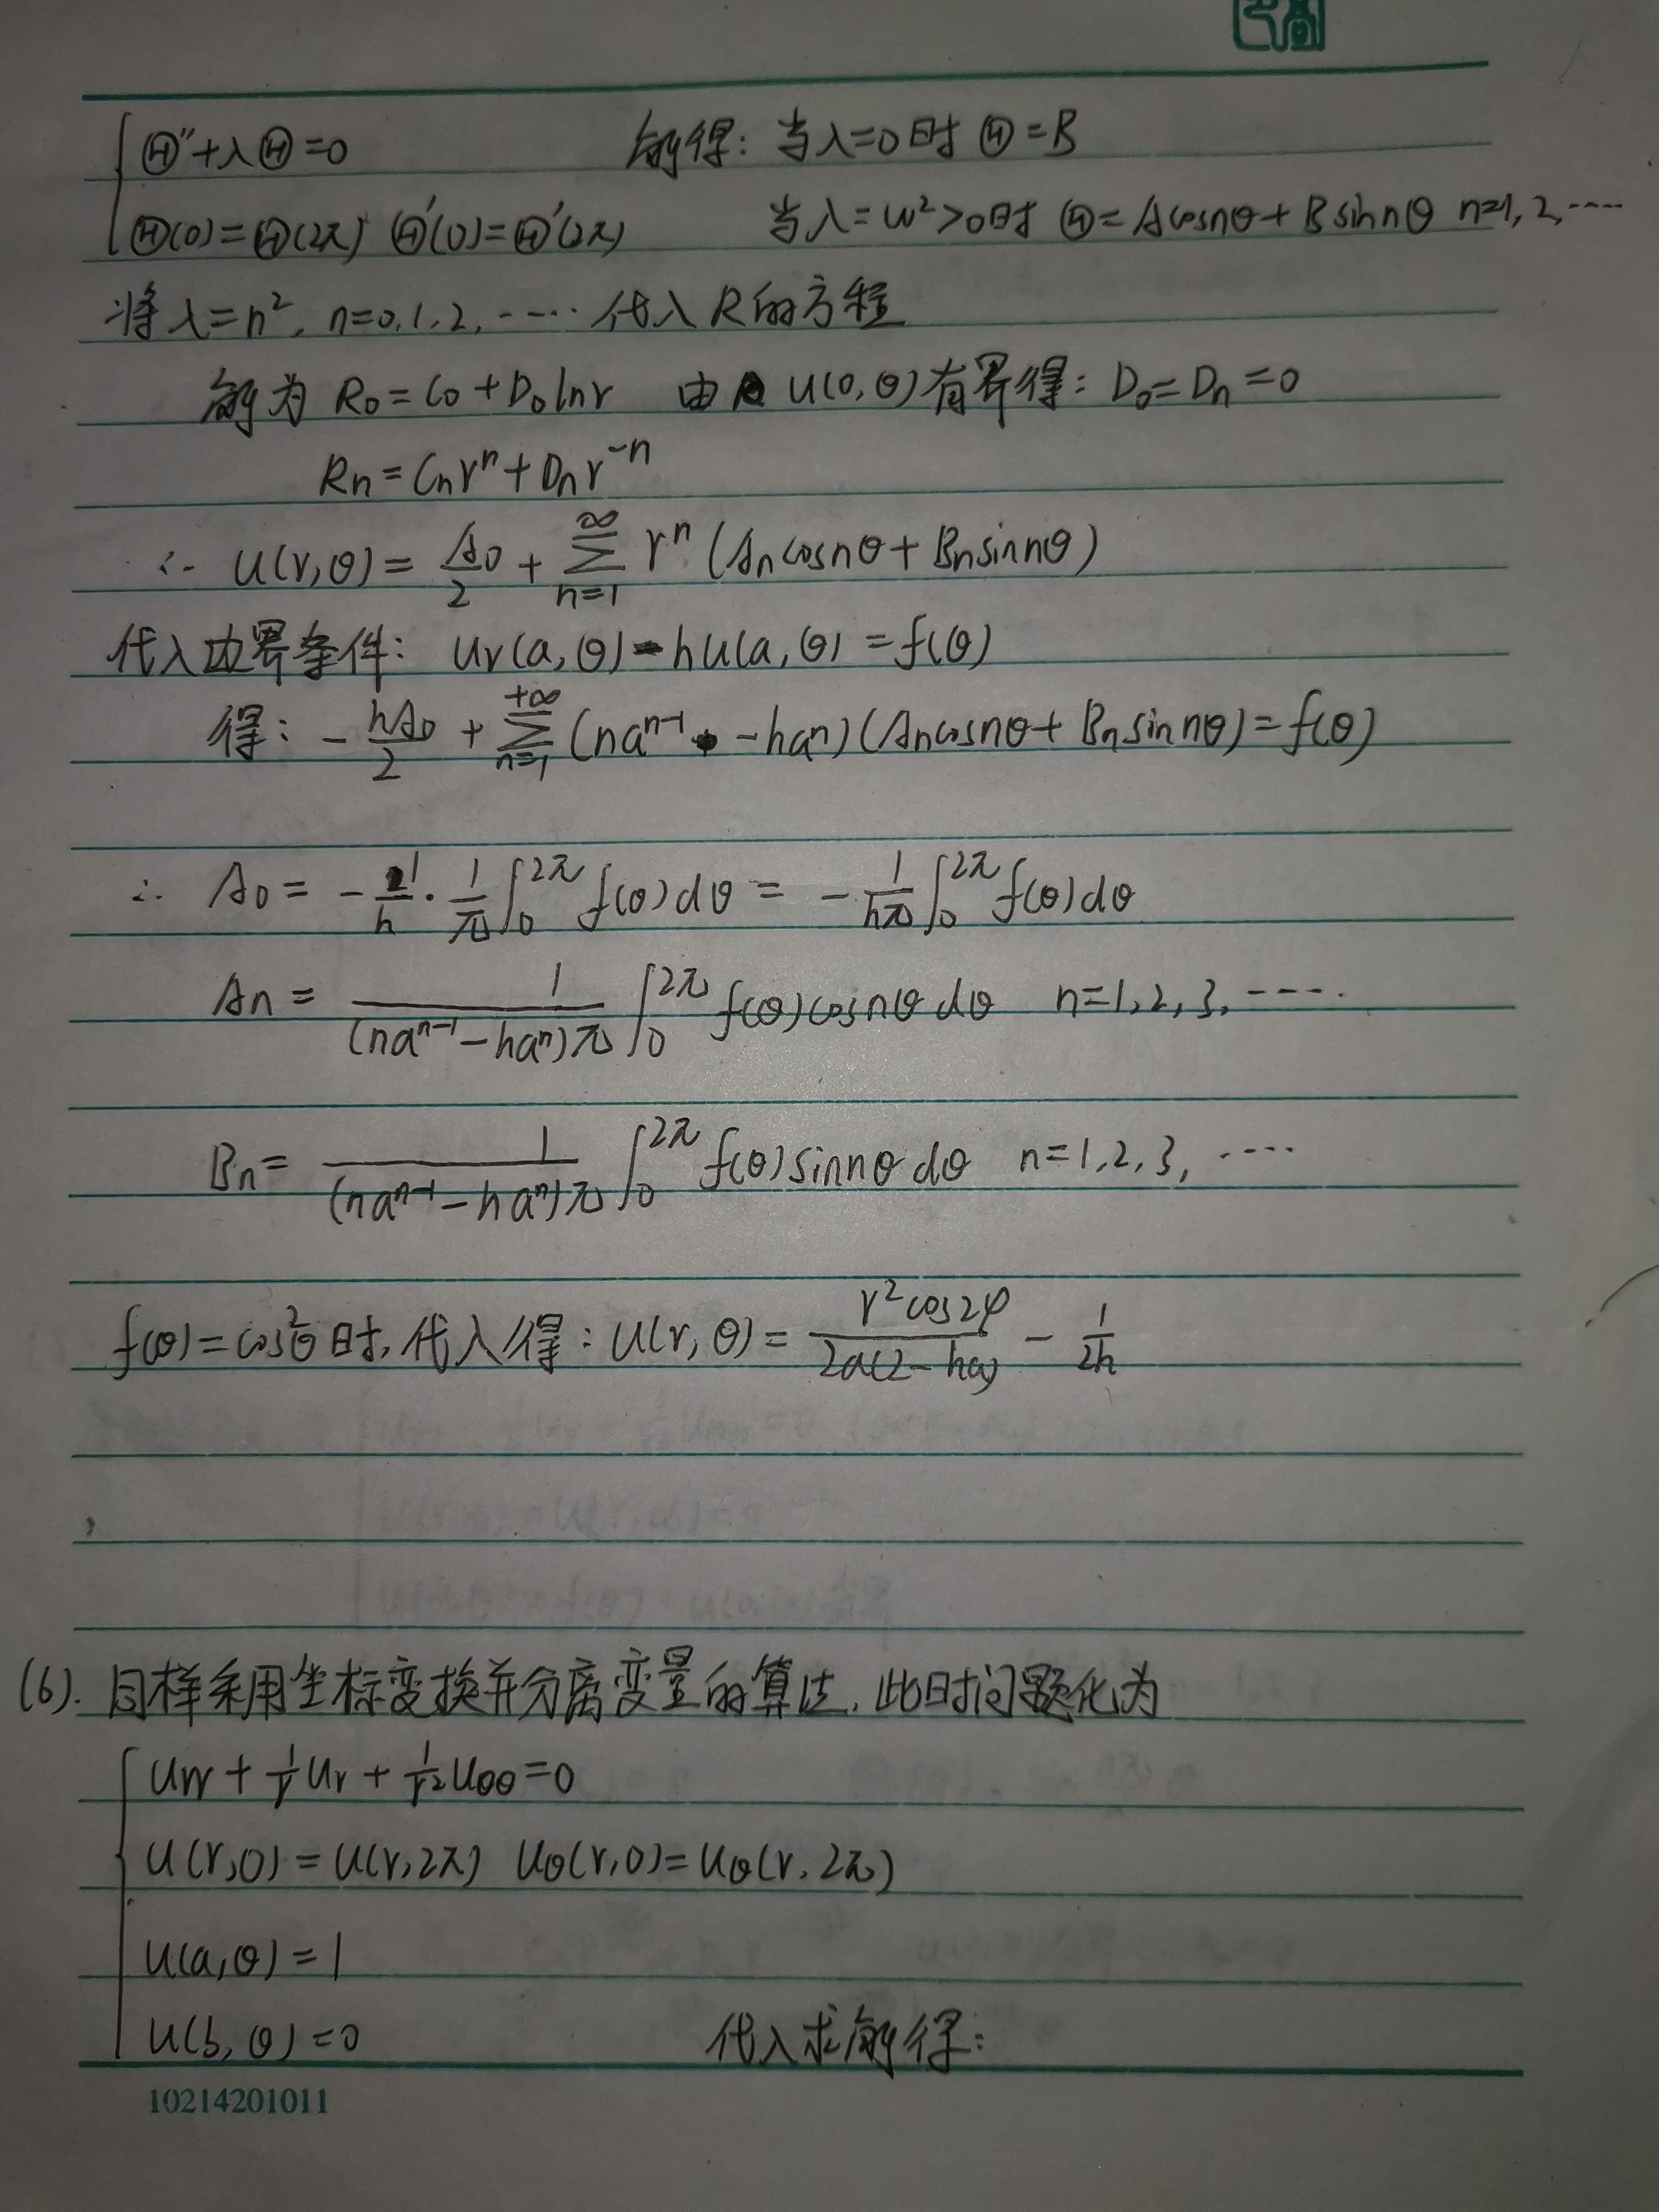 Θ''+λΘ=0 解得: 当λ=0时 Θ=B
Θ(0)=Θ(2π) Θ'(0)=Θ'(2π) 当λ=ω²>0时 Θ=Acosnθ+Bsinnθ n=1,2,……
将λ=n², n=0,1,2,…… 代入R的方程
解为 R₀=C₀+D₀lnr 由 u(0,θ)有界得: D₀=Dₙ=0
Rₙ=Cₙrⁿ+Dₙr⁻ⁿ
∴ u(r,θ)= A₀/2 + ∑_{n=1}^{∞} rⁿ (Aₙcosnθ+Bₙsinnθ)
代入边界条件: uᵣ(a,θ)-hu(a,θ)=f(θ)
得: -hA₀/2 + ∑_{n=1}^{+∞} (naⁿ⁻¹-haⁿ)(Aₙcosnθ+Bₙsinnθ)=f(θ)
∴ A₀= -1/h·1/π∫₀^{2π} f(θ)dθ = -1/(hπ)∫₀^{2π} f(θ)dθ
Aₙ= 1/((naⁿ⁻¹-haⁿ)π) ∫₀^{2π} f(θ)cosnθdθ n=1,2,3,……
Bₙ= 1/((naⁿ⁻¹-haⁿ)π) ∫₀^{2π} f(θ)sinnθdθ n=1,2,3,……
f(θ)=cos²θ时,代入得: u(r,θ)= r²cos2φ/(2a(2-ha)) - 1/(2h)
(6). 同样采用坐标变换并分离变量的算法,此时问题化为
uᵣᵣ+1/r uᵣ+1/r² u_θθ=0
u(r,0)=u(r,2π) u_θ(r,0)=u_θ(r,2π)
u(a,θ)=1
u(b,θ)=0 代入求解得:
10214201011